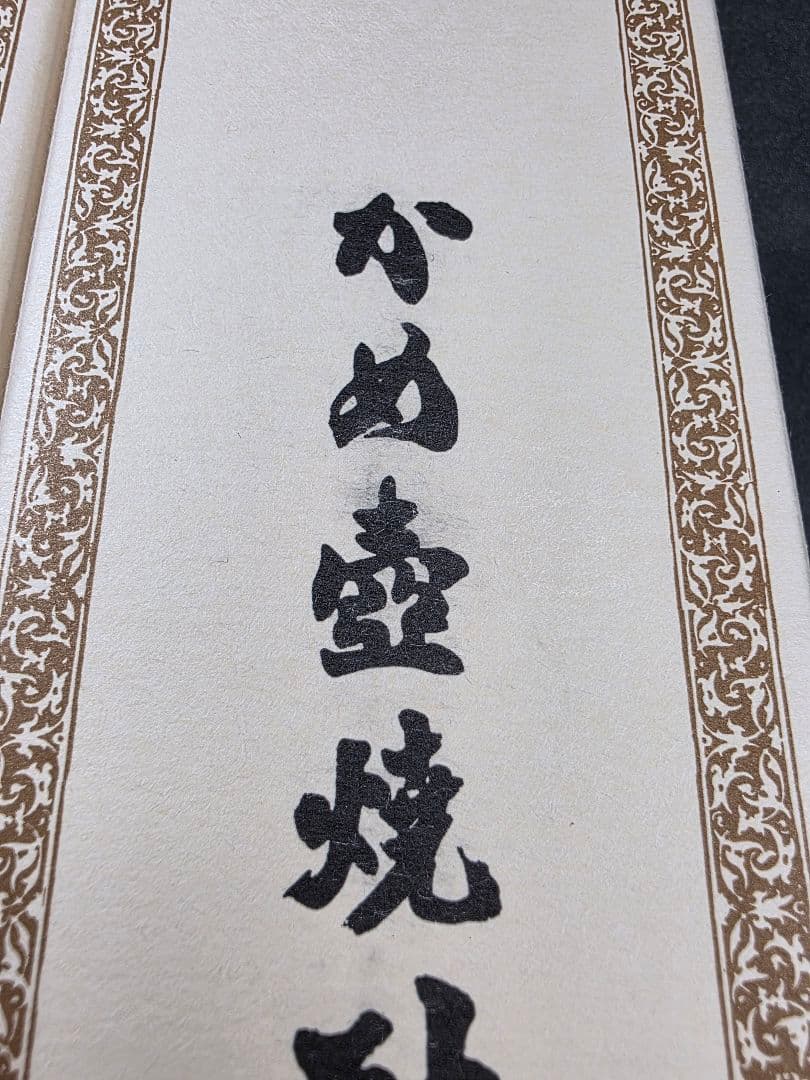 かめ壺焼